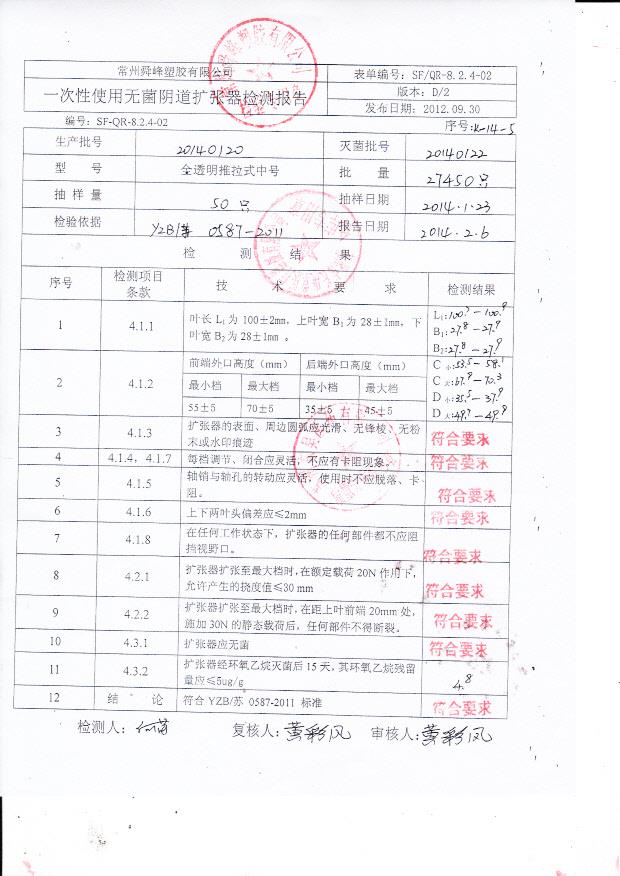 常州舜峰塑胶有限公司
表单编号: SF/QR-8.2.4-02
一次性使用无菌阴道扩张器检测报告
版本: D/2
发布日期: 2012.09.30
编号: SF-QR-8.2.4-02
序号: K-14-5
生产批号 20140120 灭菌批号 20140122
型 号 全透明推拉式中号 批 量 27450只
抽样量 50只 抽样日期 2014.1.23
检验依据 YZB/苏 0587-2011 报告日期 2014.2.6
检 测 结 果
序号 检测项目条款 技 术 要 求 检测结果
1 4.1.1 叶长 L₁为 100±2mm，上叶宽 B₁为 28±1mm，下
叶宽 B₂为 28±1mm 。
L₁:100.⁷-100.⁹
B₁:27.⁸-27.⁹
B₂:27.⁸-27.⁹
2 4.1.2 前端外口高度（mm） 后端外口高度（mm）
最小档 最大档 最小档 最大档
55±5 70±5 35±5 45±5
C小:53.⁵-58.¹
C大:67.⁹-70.³
D小:35.⁵-37.⁹
D大:49.⁷-49.⁹
3 4.1.3 扩张器的表面、周边圆弧应光滑、无锋棱、无粉
末或水印痕迹 符合要求
4 4.1.4，4.1.7 每档调节、闭合应灵活，不应有卡阻现象。 符合要求
5 4.1.5 轴销与轴孔的转动应灵活，使用时不应脱落、卡
阻。 符合要求
6 4.1.6 上下两叶头偏差应≤2mm 符合要求
7 4.1.8 在任何工作状态下，扩张器的任何部件都不应阻
挡视野口。 符合要求
8 4.2.1 扩张器扩张至最大档时，在额定载荷 20N 作用下，
允许产生的挠度值≤30 mm 符合要求
9 4.2.2 扩张器扩张至最大档时，在距上叶前端 20mm 处，
施加 30N 的静态载荷后，任何部件不得断裂。 符合要求
10 4.3.1 扩张器应无菌 符合要求
11 4.3.2 扩张器经环氧乙烷灭菌后 15 天，其环氧乙烷残留
量应≤5ug/g 4.⁸
12 结 论 符合 YZB/苏 0587-2011 标准 符合要求
检测人: 复核人: 黄彩凤 审核人: 黄彩凤